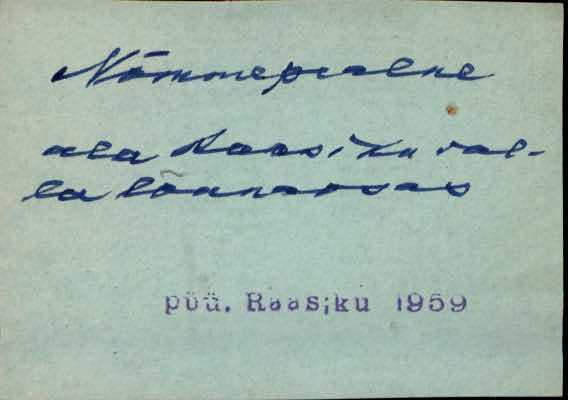 Nõmmepealne
ala Raasiku val-
la lõunaosas
püü. Raasiku 1959